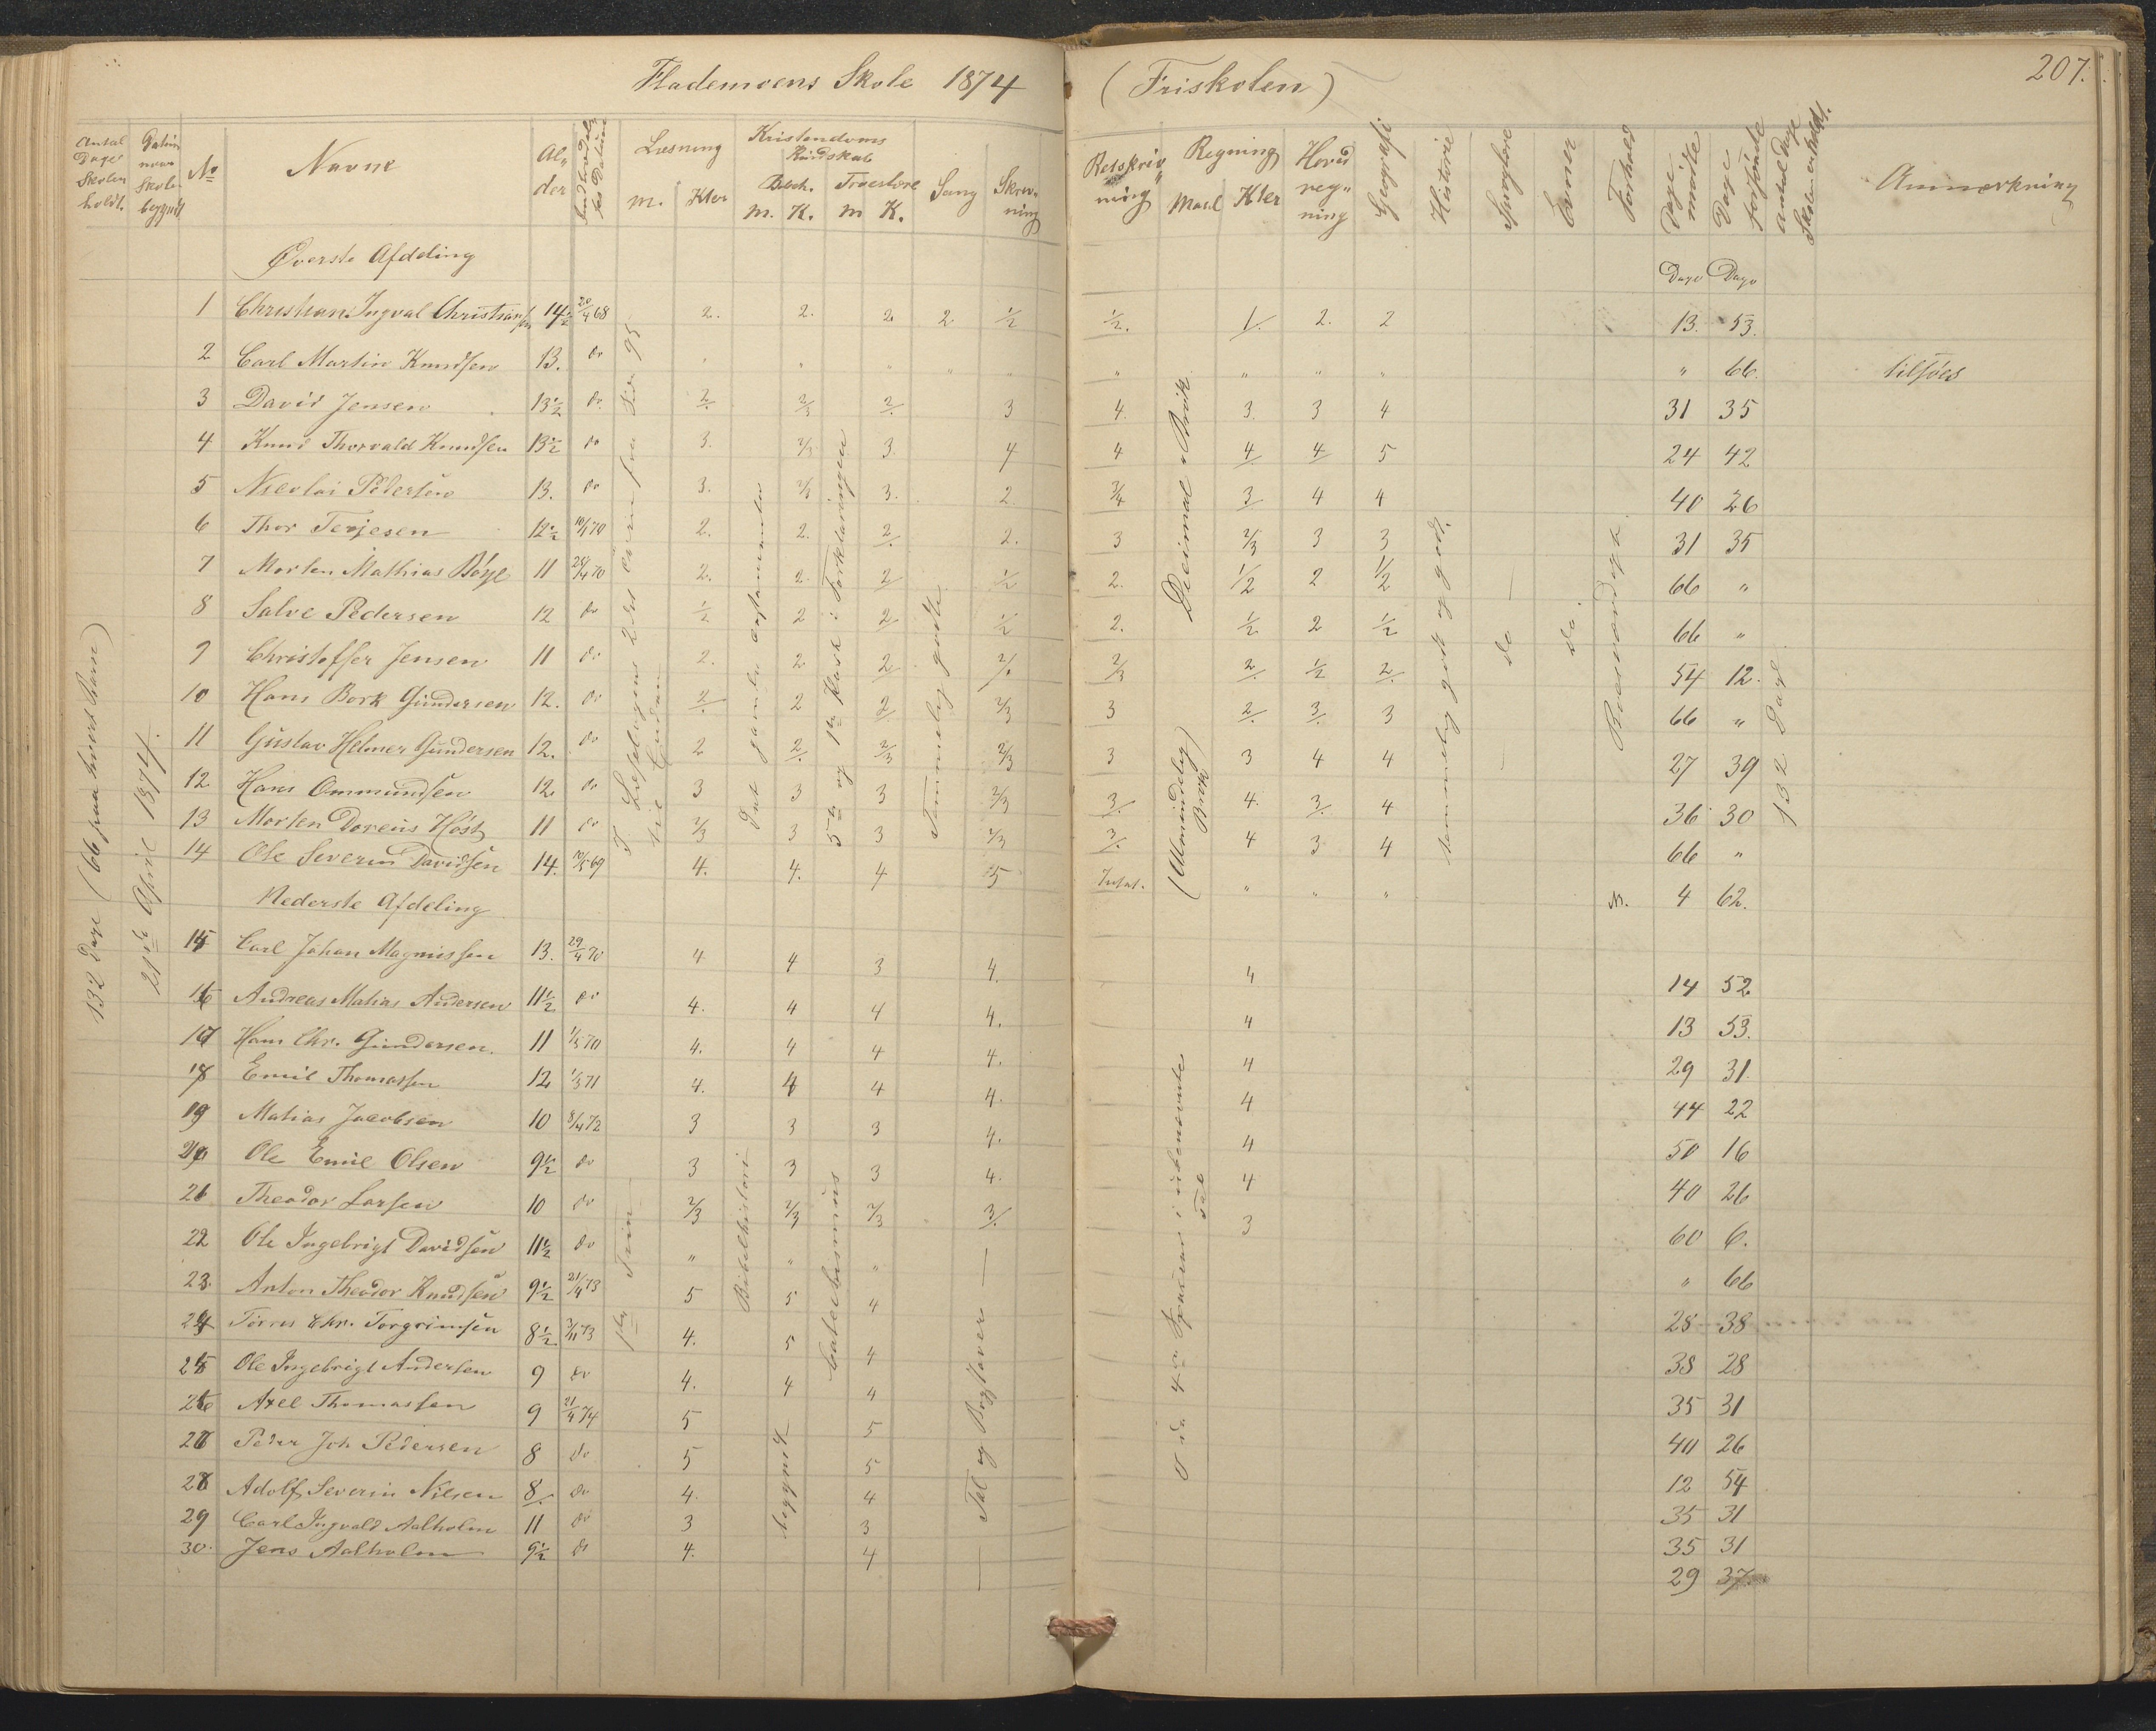 Flademoens Skole 1874 (Friskolen) 207.
Antal Dage Skolen holdt. Datum naar Skolen begyndt No Navne Alder Indtrædelses Datum Læsning m. Kter Kristendoms Kundskab Bibelh. m. K. Troeslære m K. Sang Skrivning Retskrivning Regning Maal Kter Hovedregning Geografi Historie Sproglære Evner Forhold Dage mødte Dage forsømte Antal Dage Skolen er holdt. Anmærkning
132 Dage (66 paa hvert Barn)
21de April 1874.
Øverste Afdeling Dage Dage
1 Christian Ingval Christiansen 14½ 20/4 68 2. 2. 2. 2. ½ ½. 1/. 2. 2 13. 53.
2 Carl Martin Knudsen 13. do " " " " " " " " " " 66. tilsøes
3 David Jensen 13½ do 2/. 2/3 2/. 3 4. 3. 3 4 31 35
4 Knud Thorvald Knudsen 13½ do 3. 2/3 3. 4 4 4/. 4/. 5 24 42
5 Nicolai Pedersen 13. do 3. 2/3 3. 2. 3/4 3/. 4 4 40 26
6 Thor Terjesen 12½ 10/4 70 2. 2. 2/. 2. 3 2/3 3 3 31 35
7 Morten Mathias Bøye 11 25/4 70 2. 2. 2/. ½ 2. ½ 2 ½ 66 "
8 Salve Pedersen 12 do ½ 2 2/. ½ 2. ½ 2 ½ 66 "
9 Christoffer Jensen 11 do 2. 2 2/. 2/. 2/3 2/. ½ 2/. 54 12.
10 Hans Bork Gundersen 12. do 2/. 2 2/. 2/3 3 2/. 3/. 3 66 "
11 Gustav Helmer Gundersen 12. do 2 2/. 2/3 2/3 3 3 4 4 27 39
12 Hans Ommundsen 12. do 3 3 3 2/3 3/. 4. 3/. 4 36 30
13 Morten Doreus Høst 11 do 2/3 3 3 2/3 3/. 4 3 4 66 "
14 Ole Severin Davidsen 14. 10/5 69 4. 4. 4 5 Intet. " " " 3. 4 62.
I Læsebogens 2det Trin fra Side 95 til Enden
Det gamle Testamente
5te og 1ste Part i Forklaringen
Temmelig godt
(Almindelig Brøk) Decimal Brøk
temmelig godt og godt.
do
do.
Roesværdigt.
132 Dage
Nederste Afdeling
15 Carl Johan Magnussen 13. 29/4 70 4 4 3 4. 4 14 52
16 Andreas Matias Andersen 11½ do 4. 4 4 4. 4 13 53.
17 Hans Chr. Gundersen. 11 1/5 70 4. 4 4 4. 4 29 31.
18 Emil Thomassen 12 1/3 71 4. 4 4 4. 4 44 22
19 Matias Jacobsen 10 8/4 72 3 3 3 4. 4 50 16
20 Ole Emil Olsen 9½ do 3 3 3 4. 4 40 26
21 Theodor Larsen 10 do 2/3 2/3 2/3 3/. 3 60 6.
22 Ole Ingebrigt Davidsen 11½ do " " " — " 66
23. Anton Theodor Knudsen 9½ 21/4 73 5 5 4 28 38
24 Tørres Chr. Torgrimsen 8½ 3/11 73 4. 5 4 38 28
25 Ole Ingebrigt Andersen 9 do 4. 4 4 35 31
26 Axel Thomassen 9 21/4 74 5 5 40 26
27 Peder Joh Pedersen 8 do 5 5 12 54
28 Adolf Severin Nilsen 8/. do 4. 4 35 31
29 Carl Ingvald Aalholm 11 do 3 3 35 31
30. Jens Aalholm 9½ do 4. 4 29 37
1ste Trin
Bibelhistori
begyndt
Catechismus
Tal og Bogstaver
de 4 Specier i ubenævnte Tal